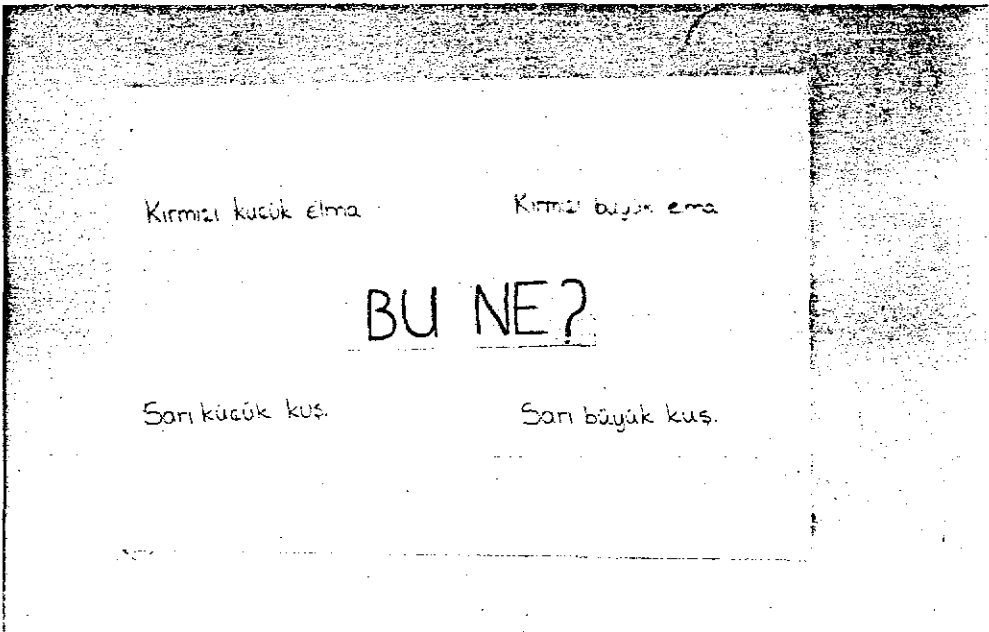 Kırmızı kucük elma
Kırmızı büyük elma
BU NE?
Sarı kücük kuş.
Sarı büyük kuş.